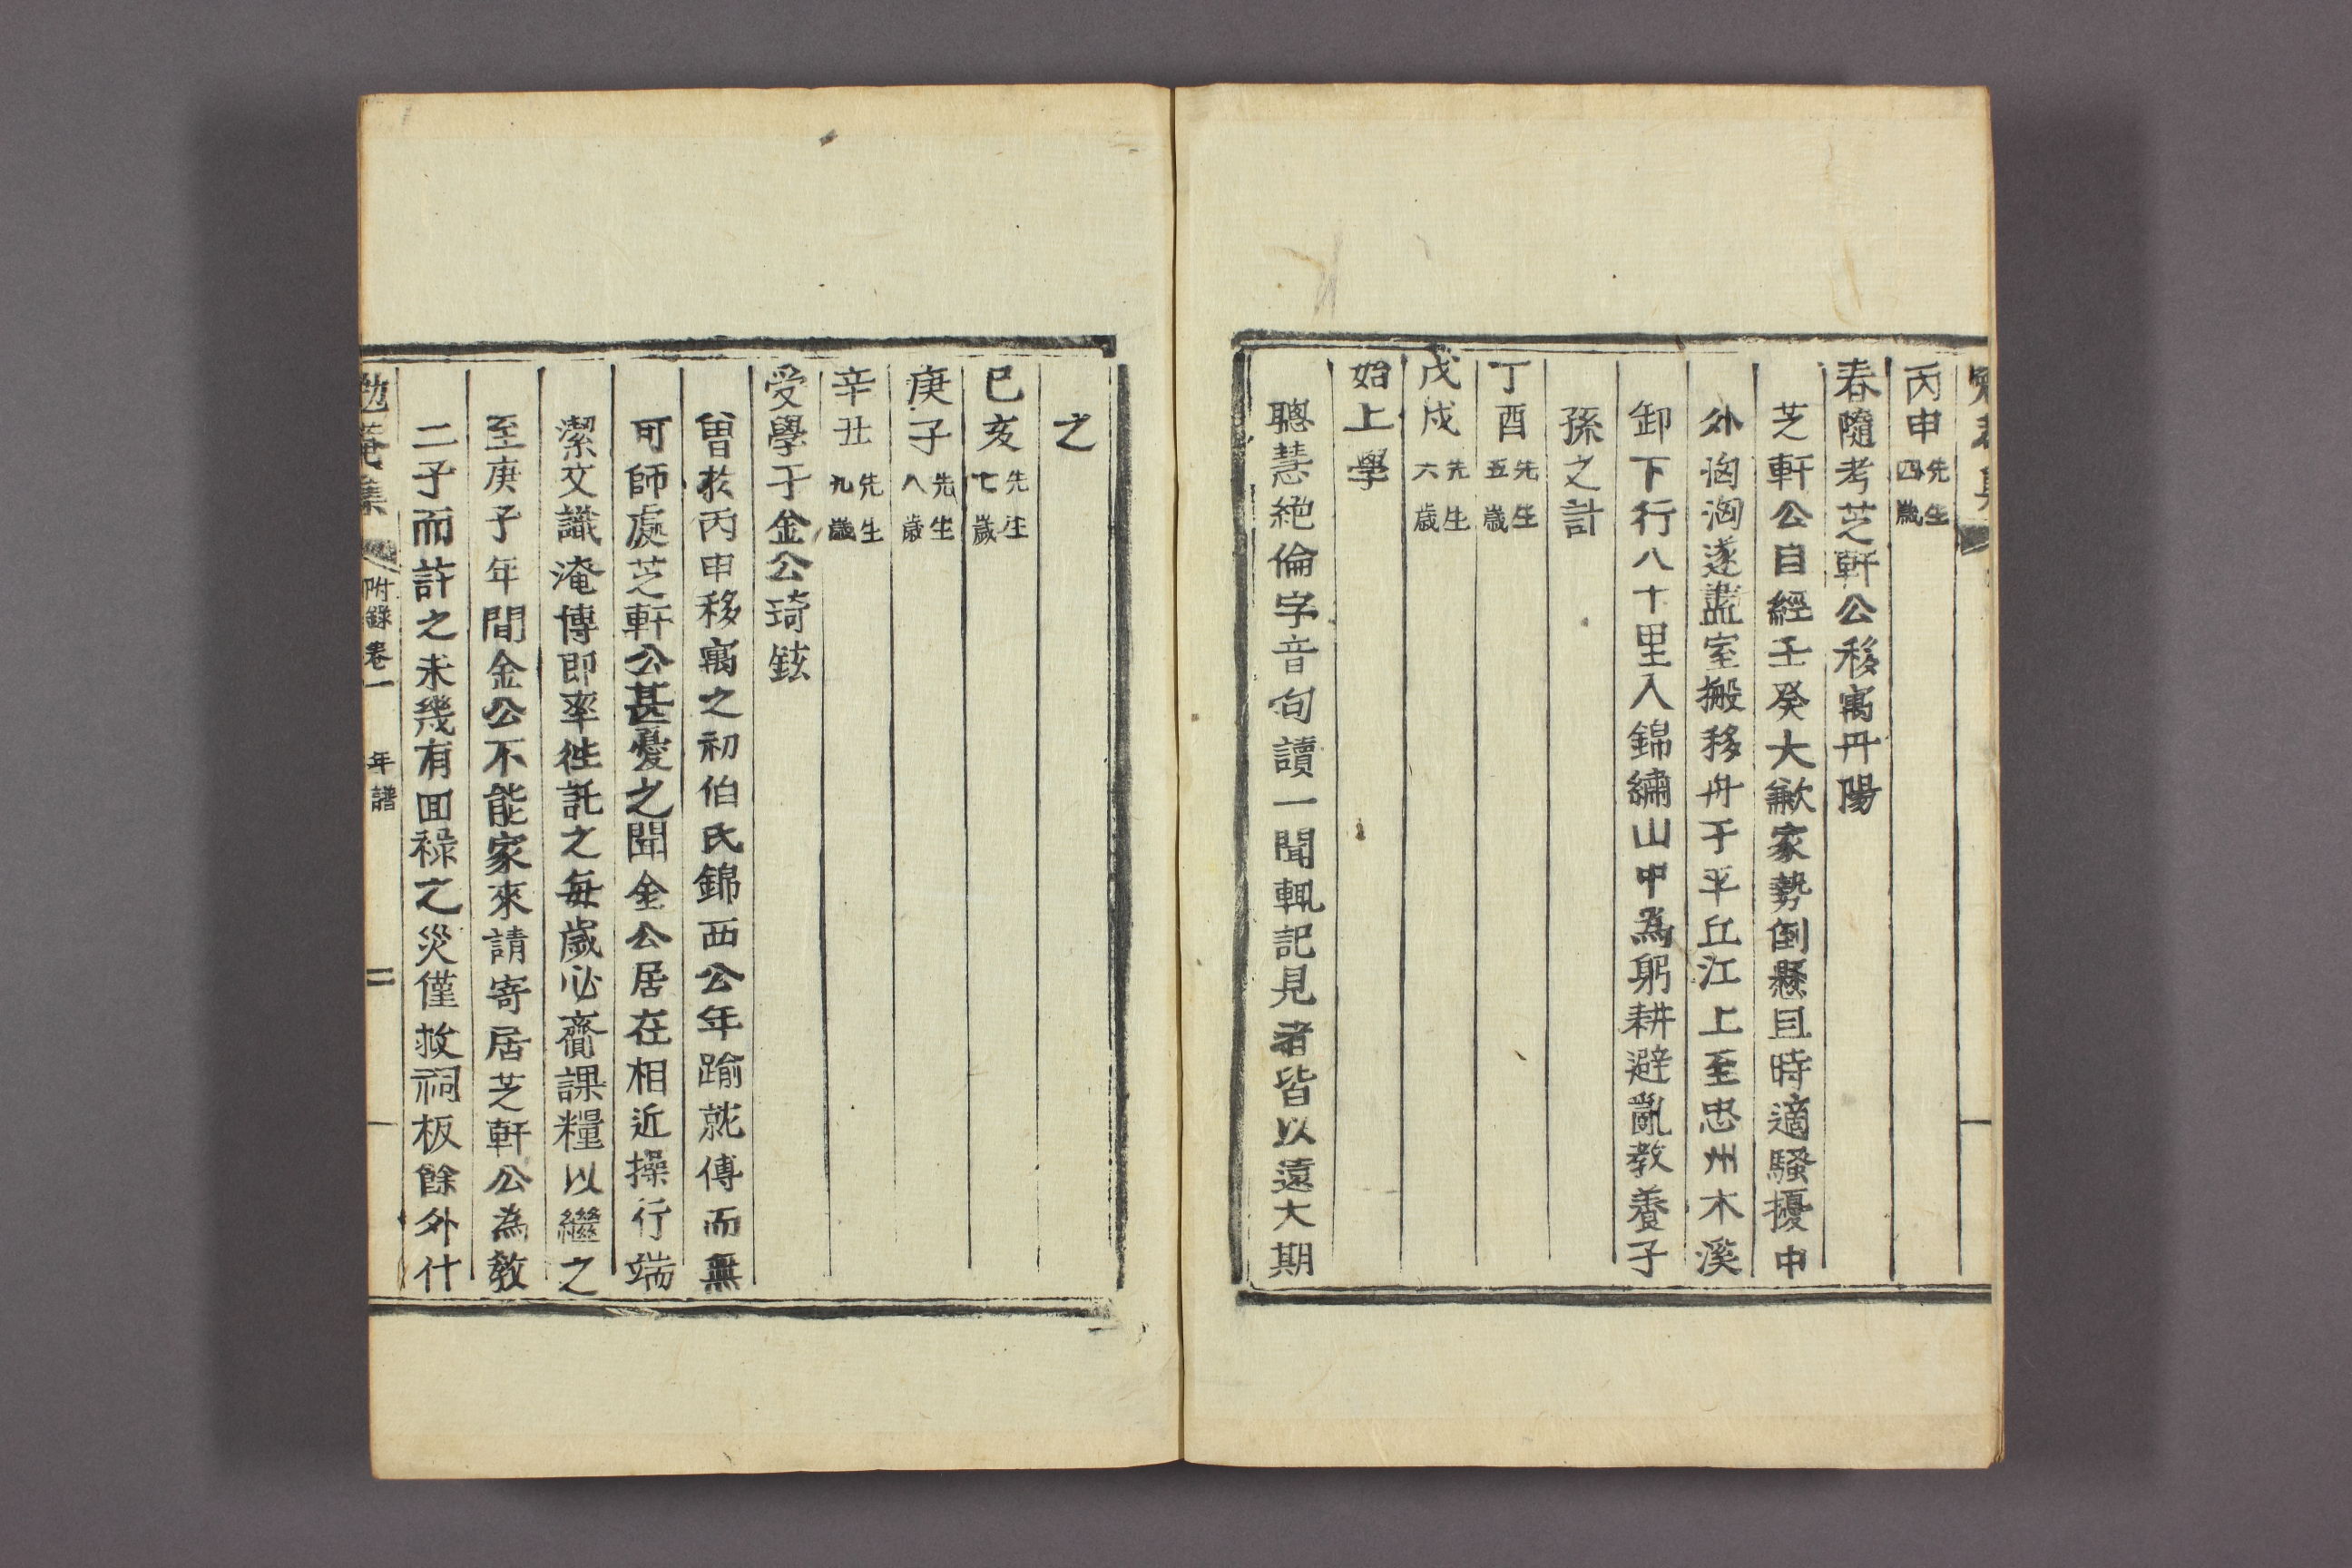 丙申先生四歲
春隨考芝軒公移寓丹陽
芝軒公自經壬癸大歉家勢倒懸且時適騷擾中
外洶洶遂盡室搬移舟于平丘江上至忠州木溪
卸下行八十里入錦繡山中為躬耕避亂教養子
孫之計
丁酉先生五歲
戊戌先生六歲
始上學
聰慧絶倫字音句讀一聞輒記見者皆以遠大期
之
己亥先生七歲
庚子先生八歲
辛丑先生九歲
受學于金公琦鉉
曾於丙申移寓之初伯氏錦西公年踰就傅而無
可師處芝軒公甚憂之聞金公居在相近操行端
潔文識淹博即率徃託之每歲必齎課糧以繼之
至庚子年間金公不能家來請寄居芝軒公為教
二子而許之未幾有回祿之災僅救祠板餘外什
勉菴集 附錄卷一 年譜 二